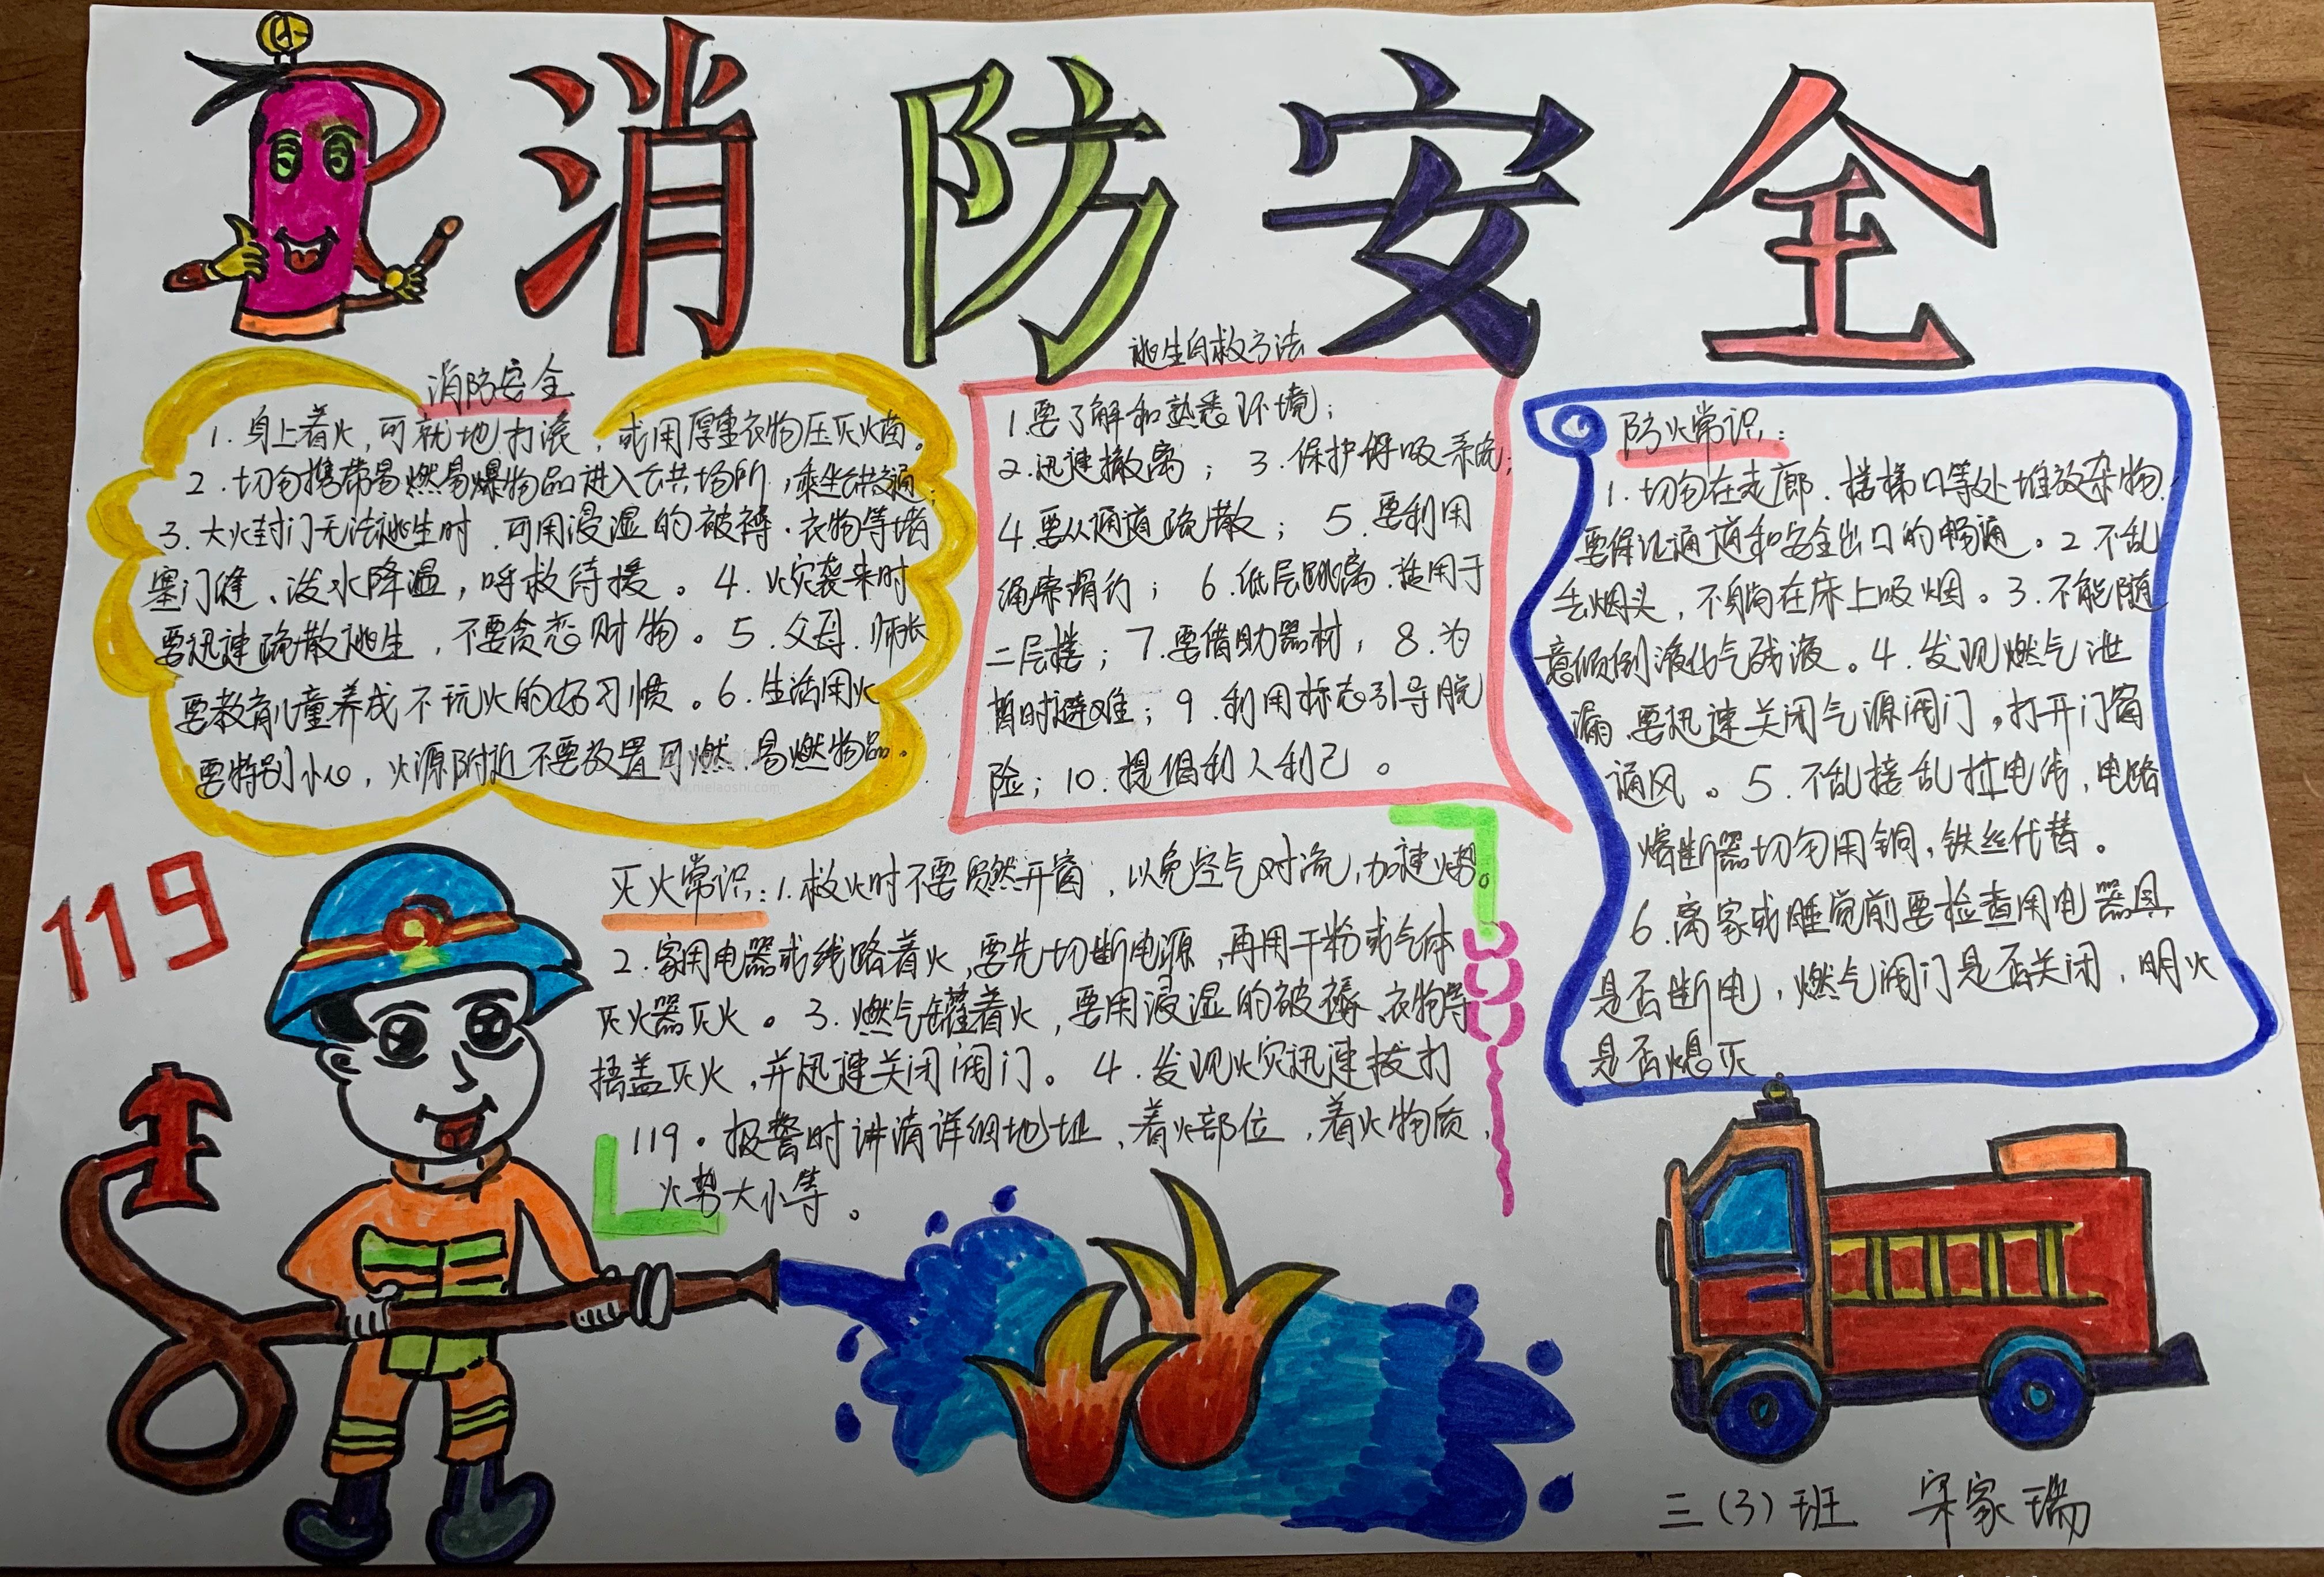 消防安全
消防安全
1.身上着火,可就地打滚,或用厚重衣物压灭火苗。
2.切勿携带易燃易爆物品进入公共场所,乘坐公共交通;
3.大火封门无法逃生时、可用浸湿的被褥、衣物等堵
塞门缝、泼水降温,呼救待援。4.火灾袭来时
要迅速疏散逃生,不要贪恋财物。5.父母、师长
要教育儿童养成不玩火的好习惯。6.生活用火
要特别小心,火源附近不要放置可燃、易燃物品。
www.nielaoshi.com
逃生自救方法
1.要了解和熟悉环境;
2.迅速撤离;3.保护呼吸系统;
4.要从通道疏散;5.要利用
绳索滑行;6.低层跳离、适用于
二层楼;7.要借助器材,8.为
暂时避难;9.利用标志引导脱
险;10.提倡利人利己。
防火常识:
1.切勿在走廊、楼梯口等处堆放杂物,
要保证通道和安全出口的畅通。2.不乱
丢烟头,不躺在床上吸烟。3.不能随
意倾倒液化气残液。4.发现燃气泄
漏、要迅速关闭气源阀门,打开门窗
通风。5.不乱接乱拉电线,电路
熔断器切勿用铜,铁丝代替。
6.离家或睡觉前要检查用电器具
是否断电,燃气阀门是否关闭,明火
是否熄灭
灭火常识:1.救火时不要贸然开窗,以免空气对流,加速火势。
2.家用电器或线路着火,要先切断电源,再用干粉或气体
灭火器灭火。3.燃气罐着火,要用浸湿的被褥、衣物等
捂盖灭火,并迅速关闭阀门。4.发现火灾迅速拨打
119。报警时讲清详细地址、着火部位,着火物质、
火势大小等。
119
三(3)班 宋家瑞